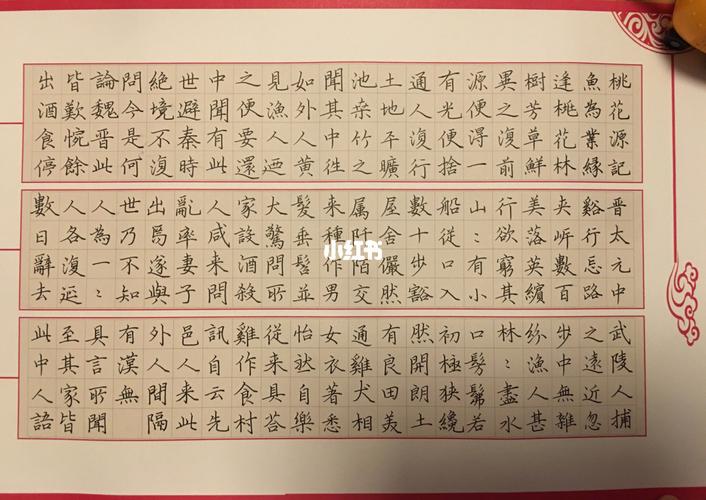 桃花源記晉太元中武陵人捕
魚為業縁谿行忘路之遠近忽
逢桃花林夾岍數百步中無雜
樹芳草鮮美落英繽紛漁人甚
異之復前行欲窮其林〻盡水
源便得一山〻有小口髣髴若
有光便捨船從口入初極狹纔
通人復行數十步豁然開朗土
土地平曠屋舍儼然有良田美
池桒竹之属阡陌交通雞犬相
聞其中徃来種作男女衣著悉
如外人黄髮垂髫並怡然自樂
見漁人迺大驚問所從来具荅
之便要還家設酒殺雞作食村
中聞有此人咸来問訊自云先
世避秦時亂率妻子邑人来此
絶境不復出焉遂與外人間隔
問今是何世乃不知有漢無
論魏晉此人為一〻具言所聞
皆歎惋餘人各復延至其家皆
出酒食停數日辭去此中人語
小红书